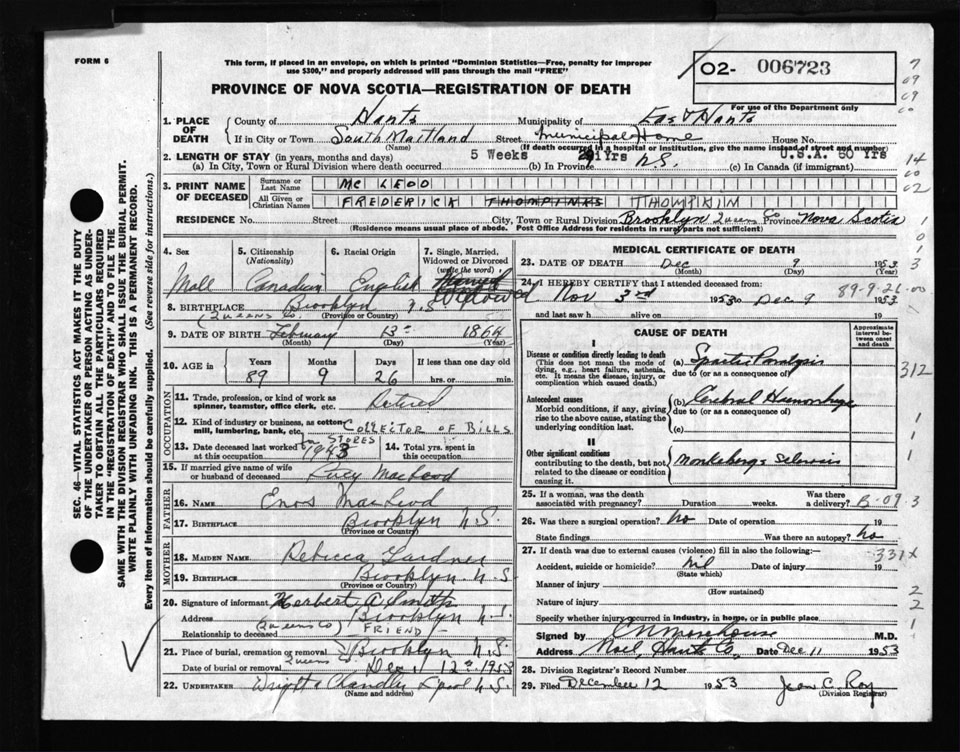 FORM 6
This form, if placed in an envelope, on which is printed "Dominion Statistics—Free, penalty for improper
use $300," and properly addressed will pass through the mail "FREE"
02- 006723
For use of the Department only
PROVINCE OF NOVA SCOTIA—REGISTRATION OF DEATH
1. PLACE OF DEATH
County of Hants Municipality of East Hants
If in City or Town South Maitland Street Municipal Home House No.
(Name) (If death occurred in a hospital or institution, give the name instead of street and number)
2. LENGTH OF STAY (in years, months and days) 5 Weeks N.S. U.S.A. 50 Yrs
(a) In City, Town or Rural Division where death occurred (b) In Province (c) In Canada (if immigrant)
3. PRINT NAME OF DECEASED
Surname or Last Name MC LEOD
All Given or Christian Names FREDERICK THOMPKINS THOMPKIM
RESIDENCE No. Street City, Town or Rural Division Brooklyn Queens Co Province Nova Scotia
(Residence means usual place of abode. Post Office Address for residents in rural parts not sufficient)
4. Sex Male
5. Citizenship (Nationality) Canadian
6. Racial Origin English
7. Single, Married, Widowed or Divorced (write the word) Widowed
8. BIRTHPLACE Brooklyn N.S
(Queens Co.) (Province or Country)
9. DATE OF BIRTH February 13th 1864
(Month) (Day) (Year)
10. AGE in Years Months Days If less than one day old
89 9 26 hrs. or min.
OCCUPATION
11. Trade, profession, or kind of work as spinner, teamster, office clerk, etc. Retired
12. Kind of industry or business, as cotton mill, lumbering, bank, etc. COLLECTOR OF BILLS
IN STORES
13. Date deceased last worked at this occupation 1943
14. Total yrs. spent in this occupation
15. If married give name of wife or husband of deceased Lucy MacLeod
FATHER
16. NAME Enos MacLeod
17. BIRTHPLACE Brooklyn N.S.
(Province or Country)
MOTHER
18. MAIDEN NAME Rebecca Gardner
19. BIRTHPLACE Brooklyn N.S
(Province or Country)
20. Signature of informant Herbert A Smith
Address Brooklyn N.S.
(Queens Co)
Relationship to deceased FRIEND
21. Place of burial, cremation or removal Brooklyn N.S.
Queens
Date of burial or removal Dec 12th 1953
22. UNDERTAKER Wright & Chandler N.S.
(Name and address)
MEDICAL CERTIFICATE OF DEATH
23. DATE OF DEATH Dec 9 1953
(Month) (Day) (Year)
24. I HEREBY CERTIFY that I attended deceased from:
Nov 3rd 1953 to Dec 9 1953
89-9-26-00
and last saw h alive on 19
CAUSE OF DEATH
Approximate interval between onset and death
I
Disease or condition directly leading to death
(This does not mean the mode of dying, e.g., heart failure, asthenia, etc. It means the disease, injury, or complication which caused death.)
(a) Spastic Paralysis
due to (or as a consequence of)
Antecedent causes
Morbid conditions, if any, giving rise to the above cause, stating the underlying condition last.
(b) Cerebral Hemorrhage
due to (or as a consequence of)
(c)
II
Other significant conditions
contributing to the death, but not related to the disease or condition causing it.
Monkebergs Sclerosis
25. If a woman, was the death associated with pregnancy? Duration weeks. Was there a delivery?
B-09
26. Was there a surgical operation? No Date of operation 19
State findings Was there an autopsy? No
27. If death was due to external causes (violence) fill in also the following:—
331X
Accident, suicide or homicide? nil Date of injury 19
(State which)
Manner of injury
(How sustained)
Nature of injury
Specify whether injury occurred in industry, in home, or in public place
Signed by E N Morehouse M.D.
Address Noel Hants Co. Date Dec 11 1953
28. Division Registrar's Record Number
29. Filed December 12 1953 Jean C. Roy
(Division Registrar)
SEC. 46—VITAL STATISTICS ACT MAKES IT THE DUTY
OF THE UNDERTAKER OR PERSON ACTING AS UNDER-
TAKER TO OBTAIN ALL THE PARTICULARS REQUIRED
IN THE "REGISTRATION OF DEATH" AND TO FILE THE
SAME WITH THE DIVISION REGISTRAR WHO SHALL ISSUE THE BURIAL PERMIT.
WRITE PLAINLY WITH UNFADING INK. THIS IS A PERMANENT RECORD.
Every item of information should be carefully supplied. (See reverse side for instructions.)
7
09
09
00
14
00
02
1
0
1
3
312
1
1
1
3
2
2
1